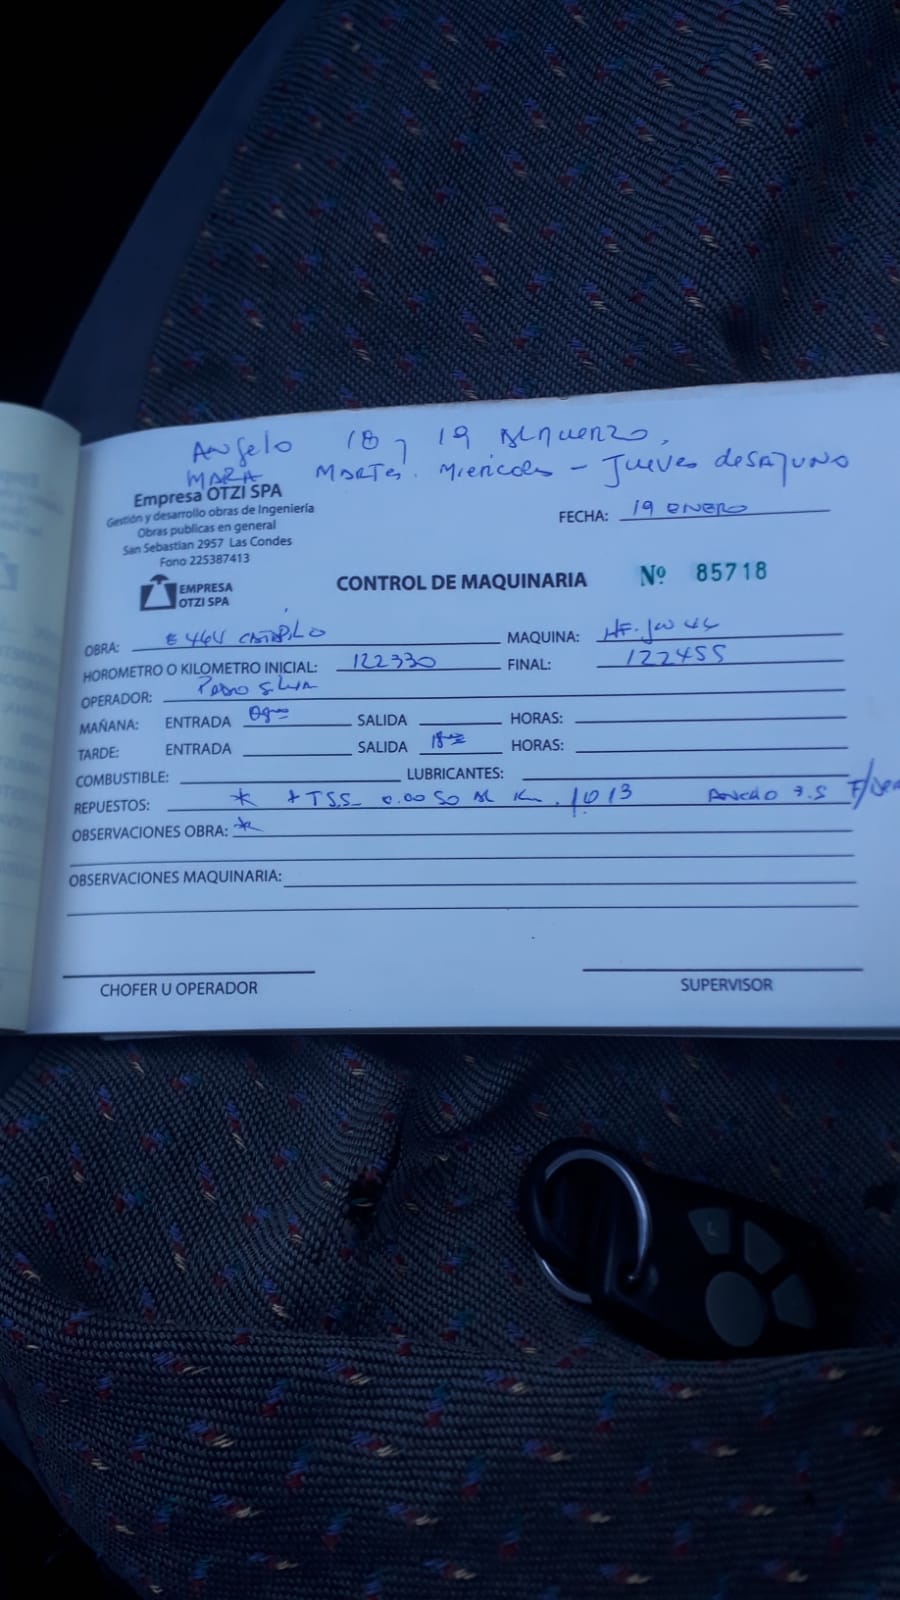 Angelo 18 y 19 Almuerzo,
MARA MARTES. Miericoles - Jueves desayuno
Empresa OTZI SPA
Gestión y desarrollo obras de Ingeniería
Obras publicas en general
San Sebastian 2957 Las Condes
Fono 225387413
EMPRESA
OTZI SPA
CONTROL DE MAQUINARIA Nº 85718
FECHA: 19 ENERO
OBRA: E 464 MAQUINA:
HOROMETRO O KILOMETRO INICIAL: 122330 FINAL: 122455
OPERADOR: Pedro Silva
MAÑANA: ENTRADA 08⁰⁰ SALIDA HORAS:
TARDE: ENTRADA SALIDA 18⁰⁰ HORAS:
COMBUSTIBLE: LUBRICANTES:
REPUESTOS: * + TSS- 0.0050 Al Km. 1013 Ancho 7.5
OBSERVACIONES OBRA: *
OBSERVACIONES MAQUINARIA:
CHOFER U OPERADOR SUPERVISOR